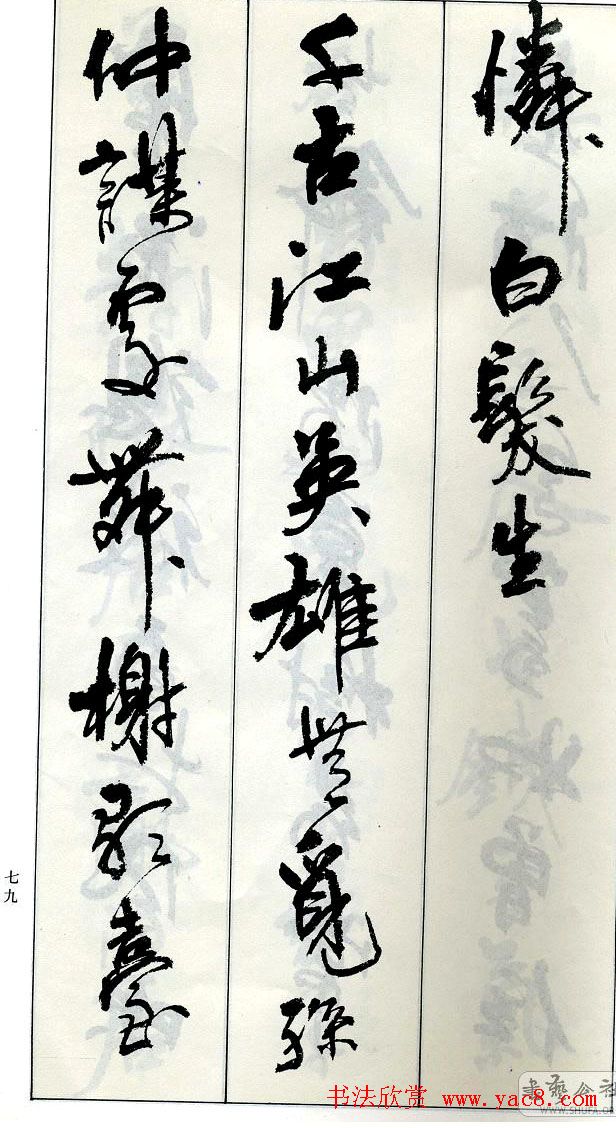 憐白髮生
千古江山英雄無覓孫
仲謀處舞榭歌臺
七九
书法欣赏 www.yac8.com